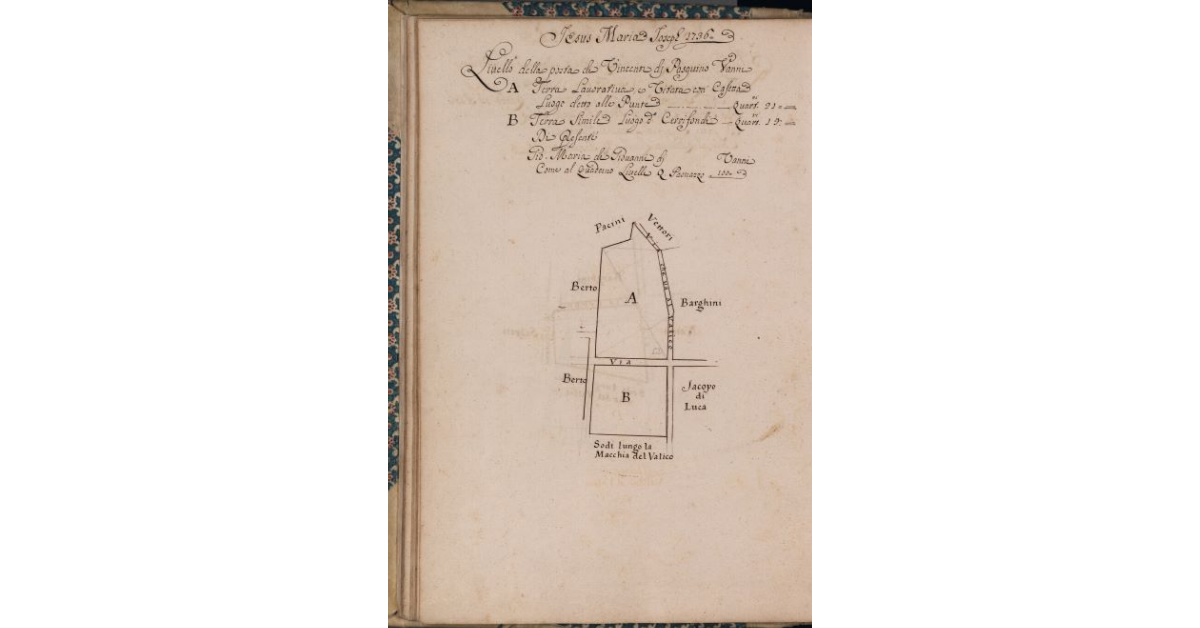 Jesus Maria Joseph 1736
Livello della posta di Vincenti di Pasquino Vanni
A Terra Lavorativa, e Vitata con Casetta
Luogo detto alle Punte Quart. 21
B Terra Simile Luogo d.º Quart. 19
Di Presente
Gio. Maria di Giovanni di Vanni
Come al Quaderno Livelli
Pacini
Venturi
Via
Berto
A
Barghini
Via
Berto
B
Jacopo
di
Luca
Sodi lungo la
Macchia del Valico